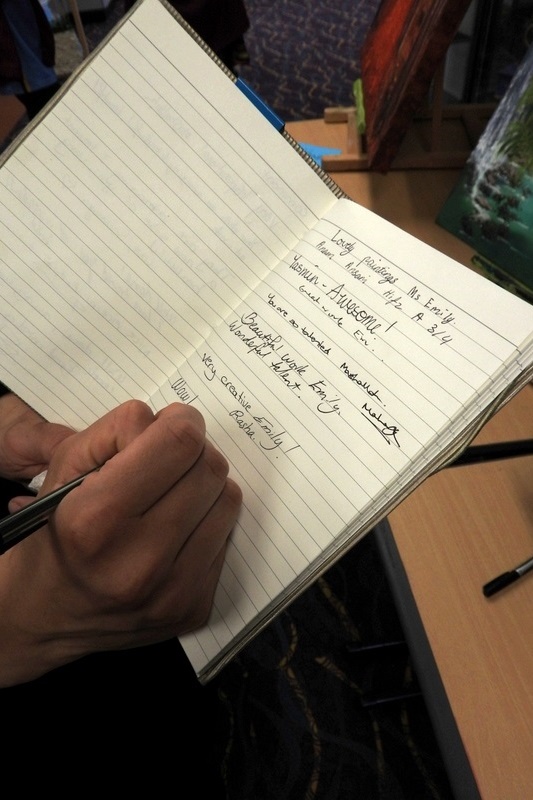 Lovely paintings Ms Emily
Anam Ansari Hifz A 3,4
Yasmin - Awesome!
Great work Em...
You are so talented Mashallah...
Beautiful work Emily.
Wonderful talent.
very creative Emily!
Rasha...
Wow!